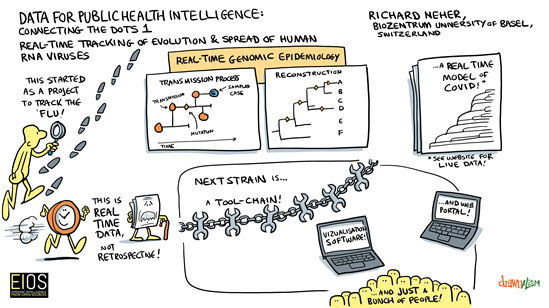 DATA FOR PUBLIC HEALTH INTELLIGENCE:
CONNECTING THE DOTS 1
REAL-TIME TRACKING OF EVOLUTION & SPREAD OF HUMAN
RNA VIRUSES
RICHARD NEHER,
BIOZENTRUM UNIVERSITY OF BASEL,
SWITZERLAND
THIS STARTED
AS A PROJECT
TO TRACK THE
'FLU!
REAL-TIME GENOMIC EPIDEMIOLOGY
TRANSMISSION PROCESS
TRANSMISSION
SAMPLED
CASE
MUTATION
TIME
RECONSTRUCTION
A
B
C
D
E
F
...A REAL TIME
MODEL OF
COVID!*
*SEE WEBSITE FOR
LIVE DATA!
THIS IS
REAL
TIME
DATA,
NOT
RETROSPECTIVE!
NEXTSTRAIN IS...
A TOOL-CHAIN!
VIZUALISATION
SOFTWARE!
...AND WEB
PORTAL!
...AND JUST A
BUNCH OF PEOPLE!
EIOS
drawnalism